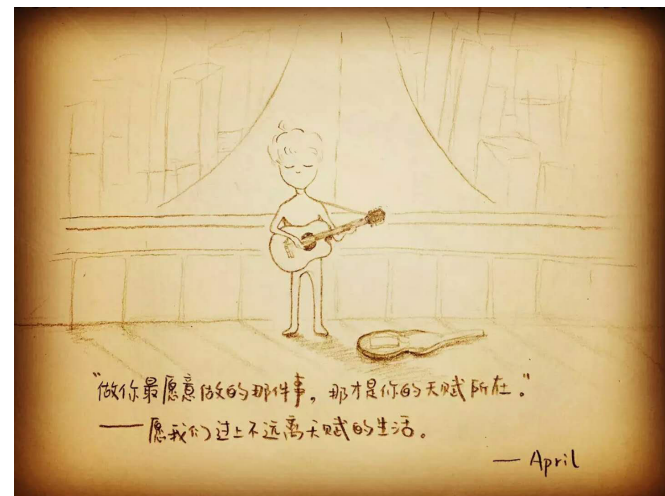 “做你最愿意做的那件事，那才是你的天赋所在。”
——愿我们过上不远离天赋的生活。
— April